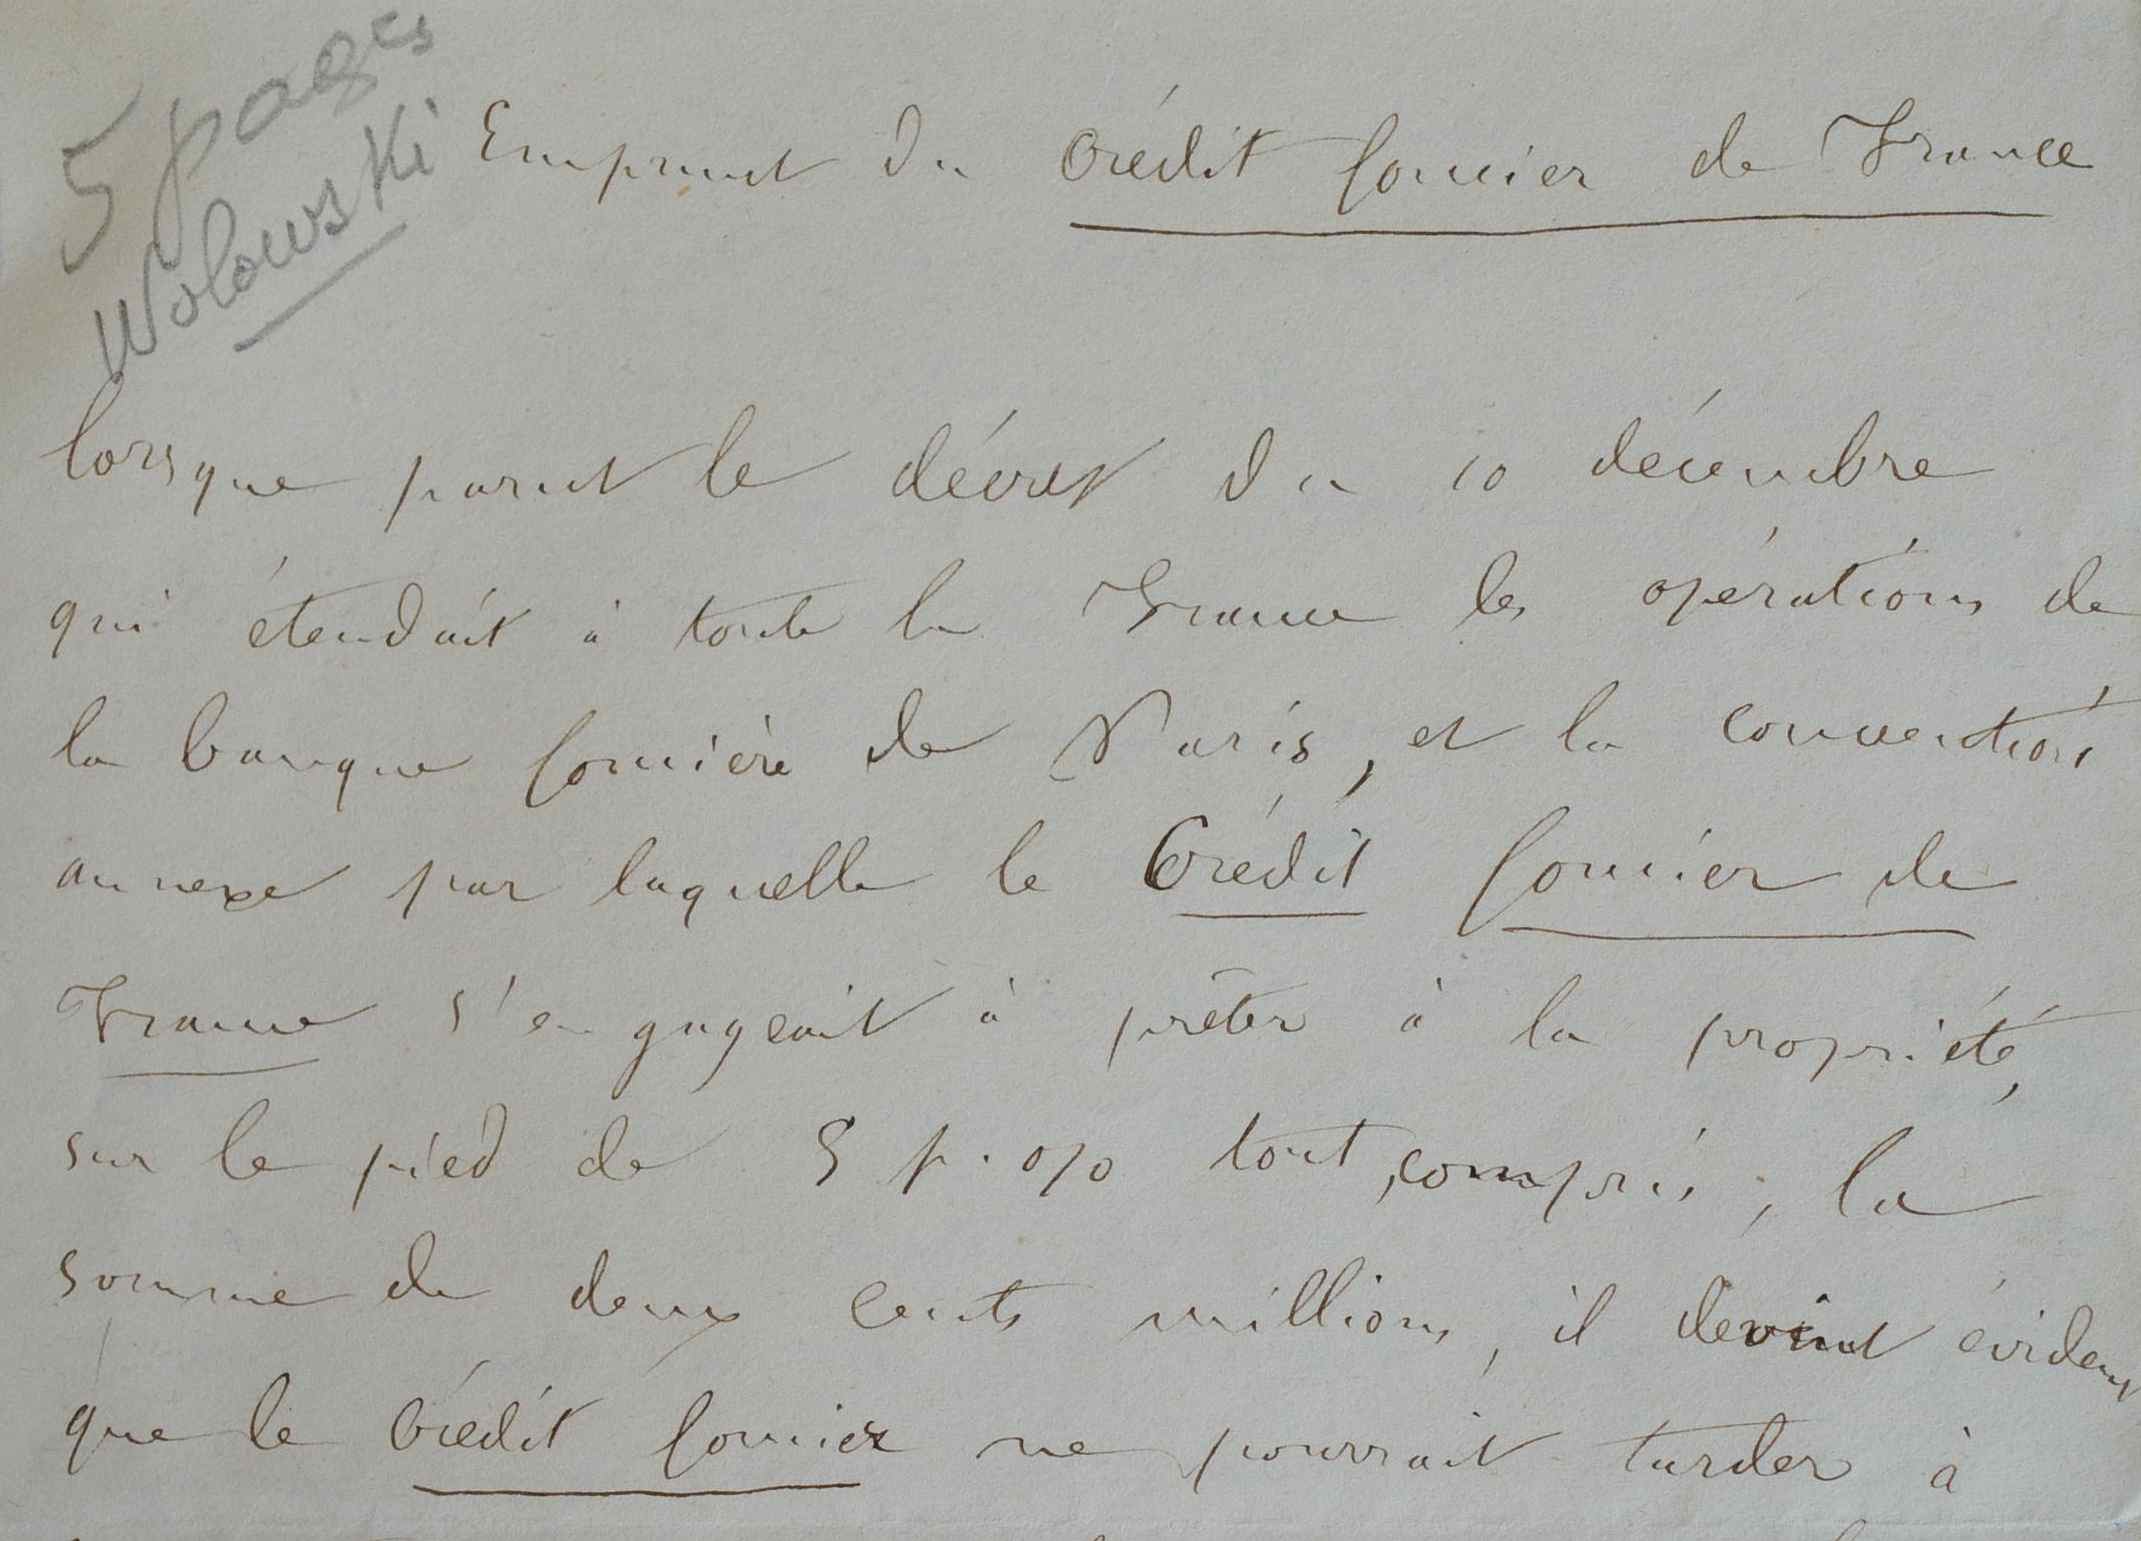 5 pages
Wolowski
Emprunt du Crédit foncier de France
lorsque parut le décret du 10 décembre
qui étendait à toute la France les opérations de
la banque foncière de Paris, et la convention
annexe par laquelle le Crédit foncier de
France s'engageait à prêter à la propriété,
sur le pied de 5 p. 0/0 tout compris, la
somme de deux cents millions, il devint évident
que le Crédit foncier ne pourrait tarder à